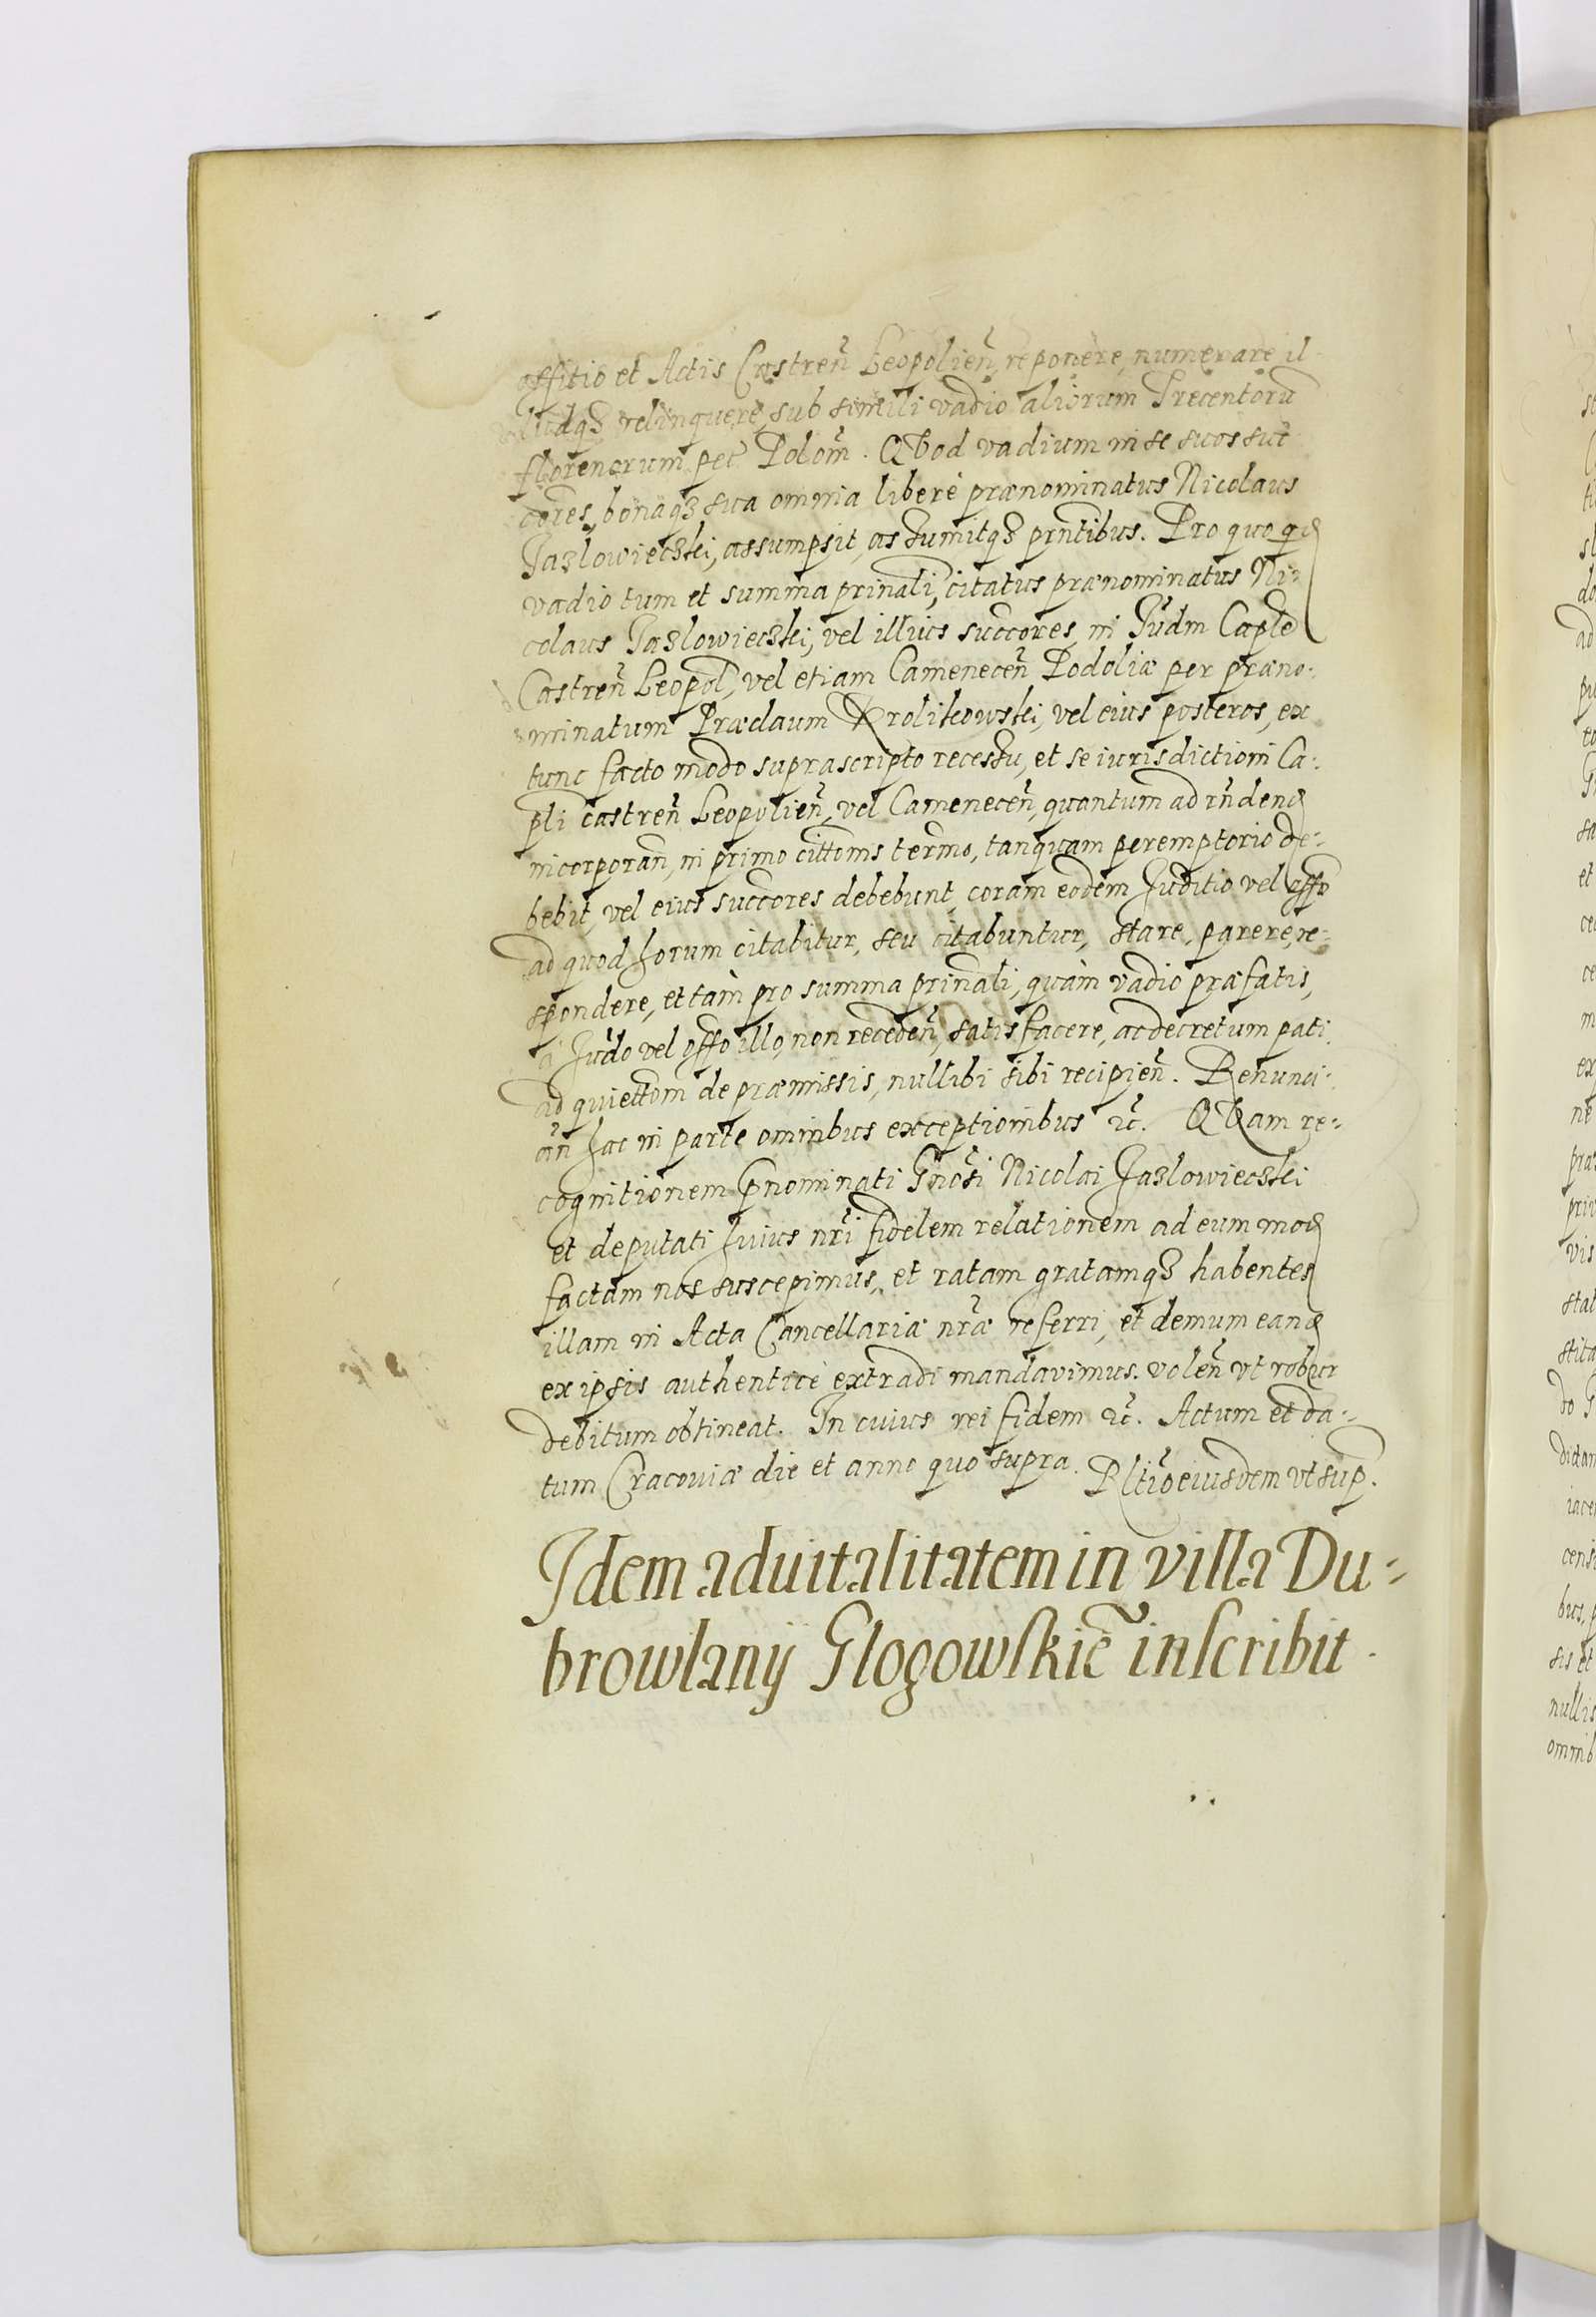 offitio et Actis Castreñ Leopolieñ reponere, numerare il-
ludqʒ relinquere, sub simili vadio aliorum Trecentorũ
florenorum pec̃ Polom̃. QVod vadium in se suos suc̃
cores, bonaqʒ sua omnia liberè prænominatus Nicolaus
Jazlowieczki, assumpsit, assumitqʒ prñtibus. Pro quo qd
vadio tum et summa prinali, citatus prænominatus Ni-
colaus Jazlowieczki, vel illius succores in Judm Caple
Castreñ Leopol, vel etiam Cameneceñ Podoliæ per præno-
minatum Præclaum Krolikowski, vel eius posteros, ex
tunc facto modo suprascripto recessu, et se iurisdictioni Ca-
pli castreñ Leopolieñ, vel Cameneceñ, quantum ad rñdend
incorporañ, in primo cittonis termo, tanquam peremptorio de-
bebit, vel eius succores debebunt, coram eodem Juditio vel offo
ad quod forum citabitur, seu citabuntur, stare, parere, re-
spondere, et tàm pro summa prinali, quàm vadio præfatis,
à Judo vel offo illo, non recedeñ, satisfacere, ac decretum pati
ad quiettom de præmissis, nullibi sibi recipieñ. Renunci-
añ hac in parte omnibus exceptionibus ꝛc̃. QVam re-
cognitionem Pnominati Gnosi Nicolai Jazlowieczki
et deputati huius nr̃i fidelem relationem ad eum mod
factam nos suscepimus, et ratam gratamqʒ habentes
illam in Acta Cancellariæ nr̃æ referri, et demum eand
ex ipsis authenticè extradi mandavimus. voleñ vt robur
debitum obtineat. In cuius rei fidem ꝛc̃. Actum et da-
tum Cracoviæ die et anno quo supra. Rltio eiusdem vt sup.
Idem aduitalitatem in villa Du-
browlanÿ Glogowskiē inscribit.